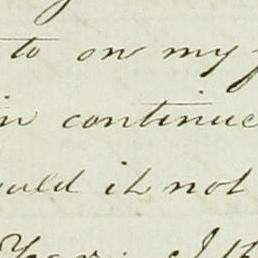 to on my
in continue
ould it not